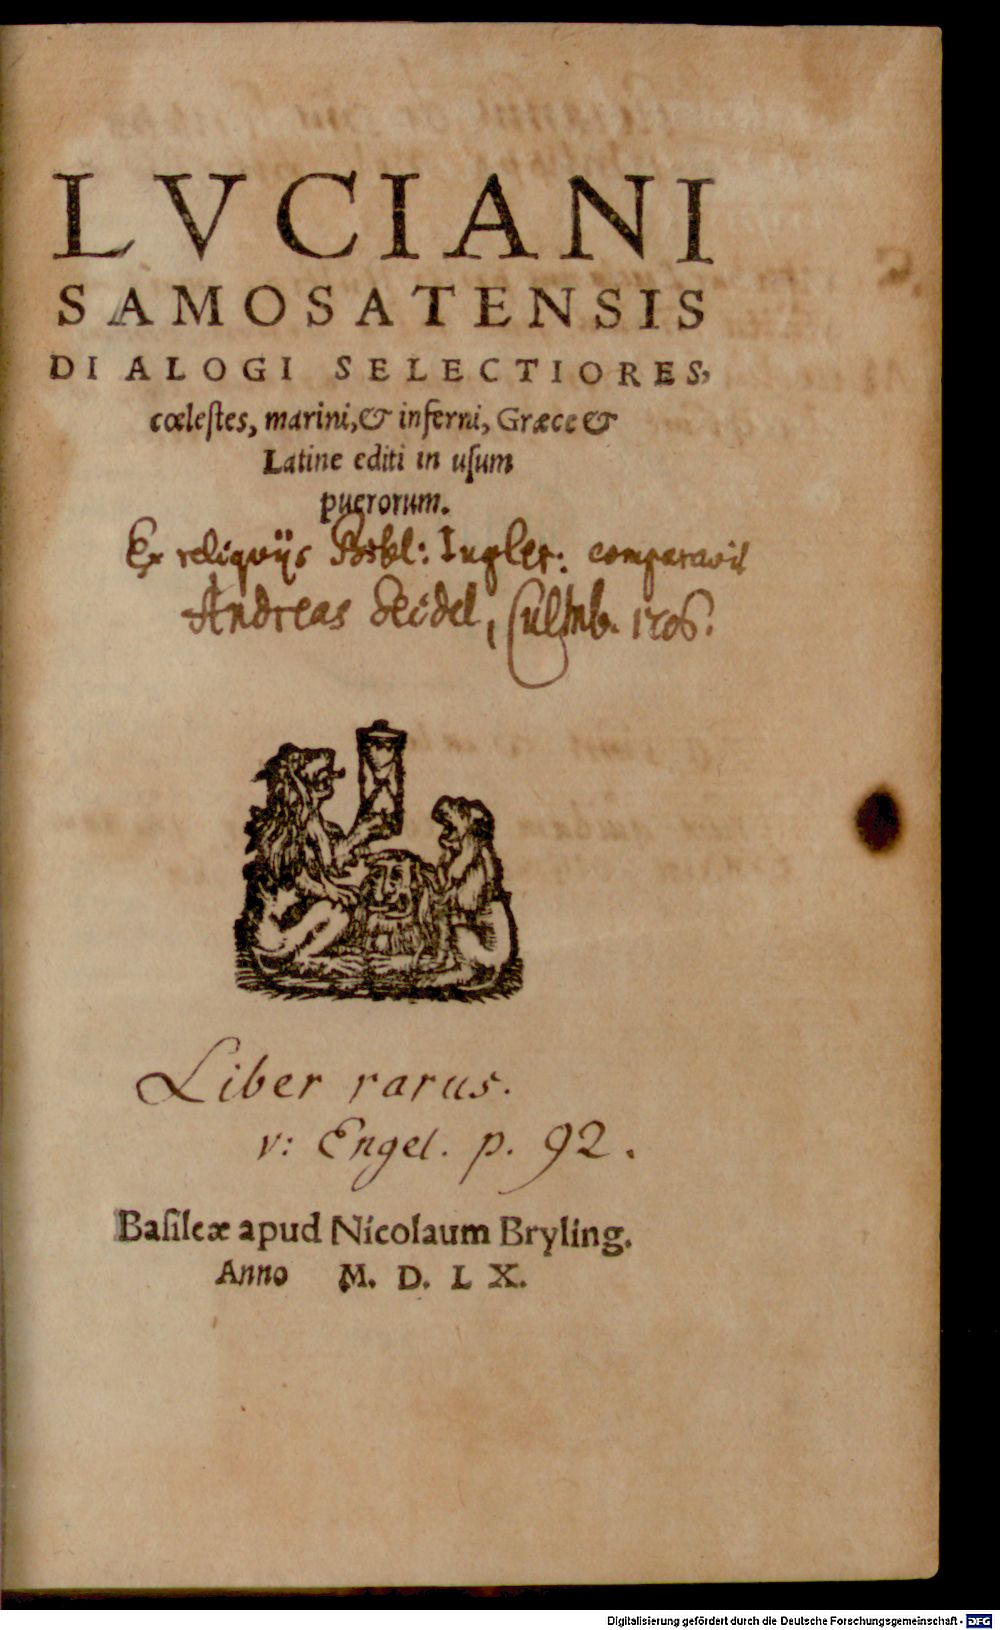 LVCIANI
SAMOSATENSIS
DIALOGI SELECTIORES,
cœleſtes, marini, & inferni, Græce &
Latine editi in uſum
puerorum.
Ex reliqvijs Bibl: Ingler: comparavit
Andreas Seidel, Culmb. 1706.
Liber rarus.
v: Engel. p. 92.
Baſileæ apud Nicolaum Bryling.
Anno M. D. L X.
Digitalisierung gefördert durch die Deutsche Forschungsgemeinschaft - DFG